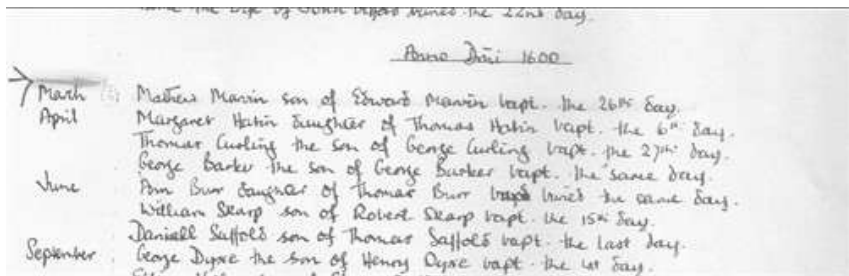 the wife of John buried the 22nd day.
Anno Dñi 1600
March Mathew Marvin son of Edward Marvin bapt. the 26th day.
April Margaret Hatin daughter of Thomas Hatin bapt. the 6th day.
Thomas Curling the son of George Curling bapt. the 27th day.
George Barker the son of George Barker bapt. the same day.
June Ann Burr daughter of Thomas Burr buried the same day.
William Skarp son of Robert Skarp bapt. the 15th day.
Daniell Saffold son of Thomas Saffold bapt. the last day.
September George Dyxe the son of Henry Dyxe bapt. the 1st day.